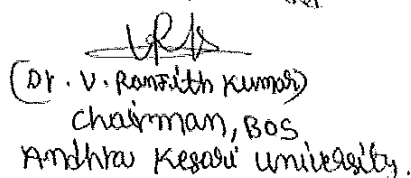 (Dr. V. Ranjith Kumar)
Chairman, BOS
Andhra Kesari University.